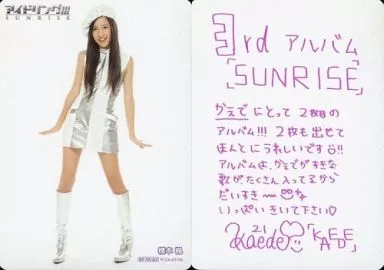 アイドリング!!!
SUNRISE
橋本楓
3rd アルバム
「SUNRISE」
かえでにとって2枚目の
アルバム!!! 2枚も出せて
ほんとにうれしいです!!
アルバムよ、かえでがすきな
歌がたくさん入ってるから
だいすき〜な
いっぱいきいて下さい♡
21
Kaede♡ KAEDE